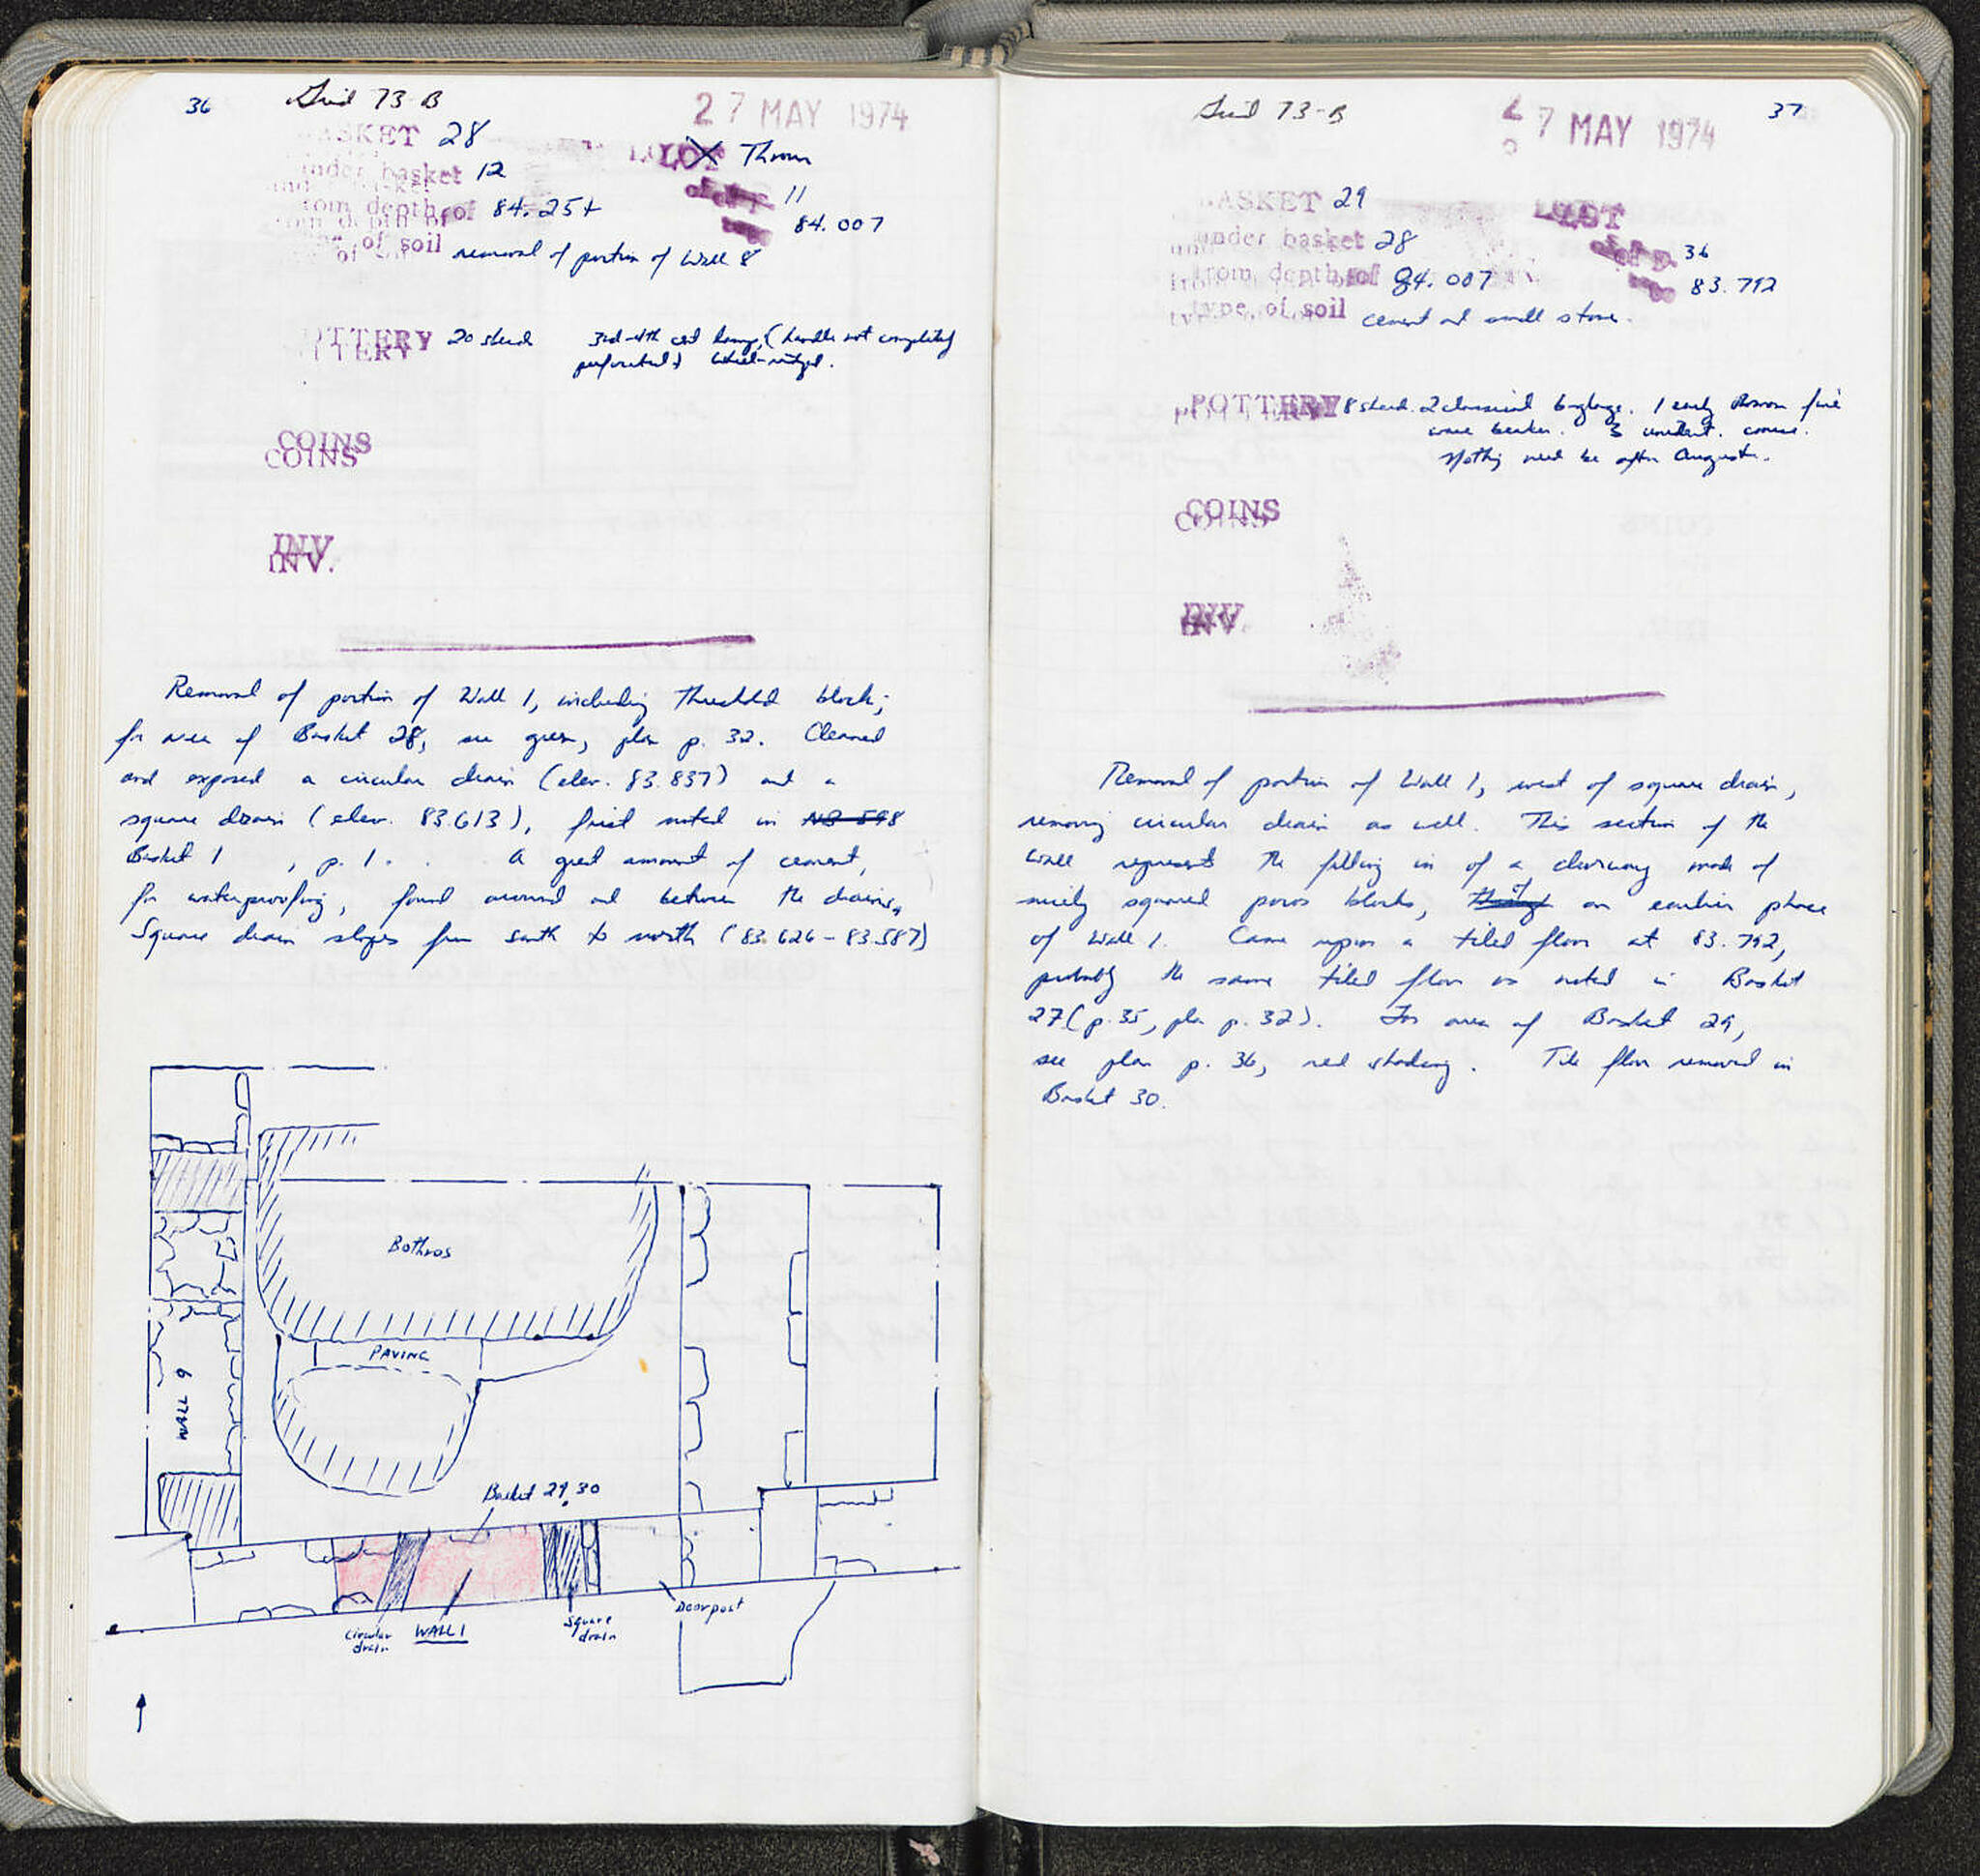 36
Grid 73-B
27 MAY 1974
BASKET 28
LOT Throw
under basket 12
of P. 11
from depth of 84.25+
to 84.007
type of soil removal of portion of Wall 8
POTTERY 20 sherds 3rd-4th cent lamp, (handle not completely
perforated) wheel-ridged.
COINS
INV.
Removal of portion of Wall 1, including threshold block;
for area of Basket 28, see green, plan p. 32. Cleaned
and exposed a circular drain (elev. 83.837) and a
square drain (elev. 83.613), first noted in NB 598
Basket 1 , p. 1. A great amount of cement,
for waterproofing, found around and between the drains.
Square drain slopes from south to north (83.626-83.587)
Bothros
PAVING
WALL 9
Basket 29, 30
Circular
drain
WALL 1
Square
drain
Doorpost
Grid 73-B
27 MAY 1974
37
BASKET 29
LOT
under basket 28
of P. 36
from depth of 84.007
to 83.792
type of soil cement and small stone.
POTTERY 8 sherds. 2 classical 1 early Roman fine
ware beaker. 5 unident. coarse.
Nothing need be after Augustus.
COINS
INV.
Removal of portion of Wall 1, west of square drain,
removing circular drain as well. This section of the
wall represents the filling in of a doorway made of
nicely squared poros blocks, of an earlier phase
of Wall 1. Came upon a tiled floor at 83.792,
probably the same tiled floor as noted in Basket
27 (p. 35, plan p. 32). For area of Basket 29,
see plan p. 36, red shading. Tile floor removed in
Basket 30.